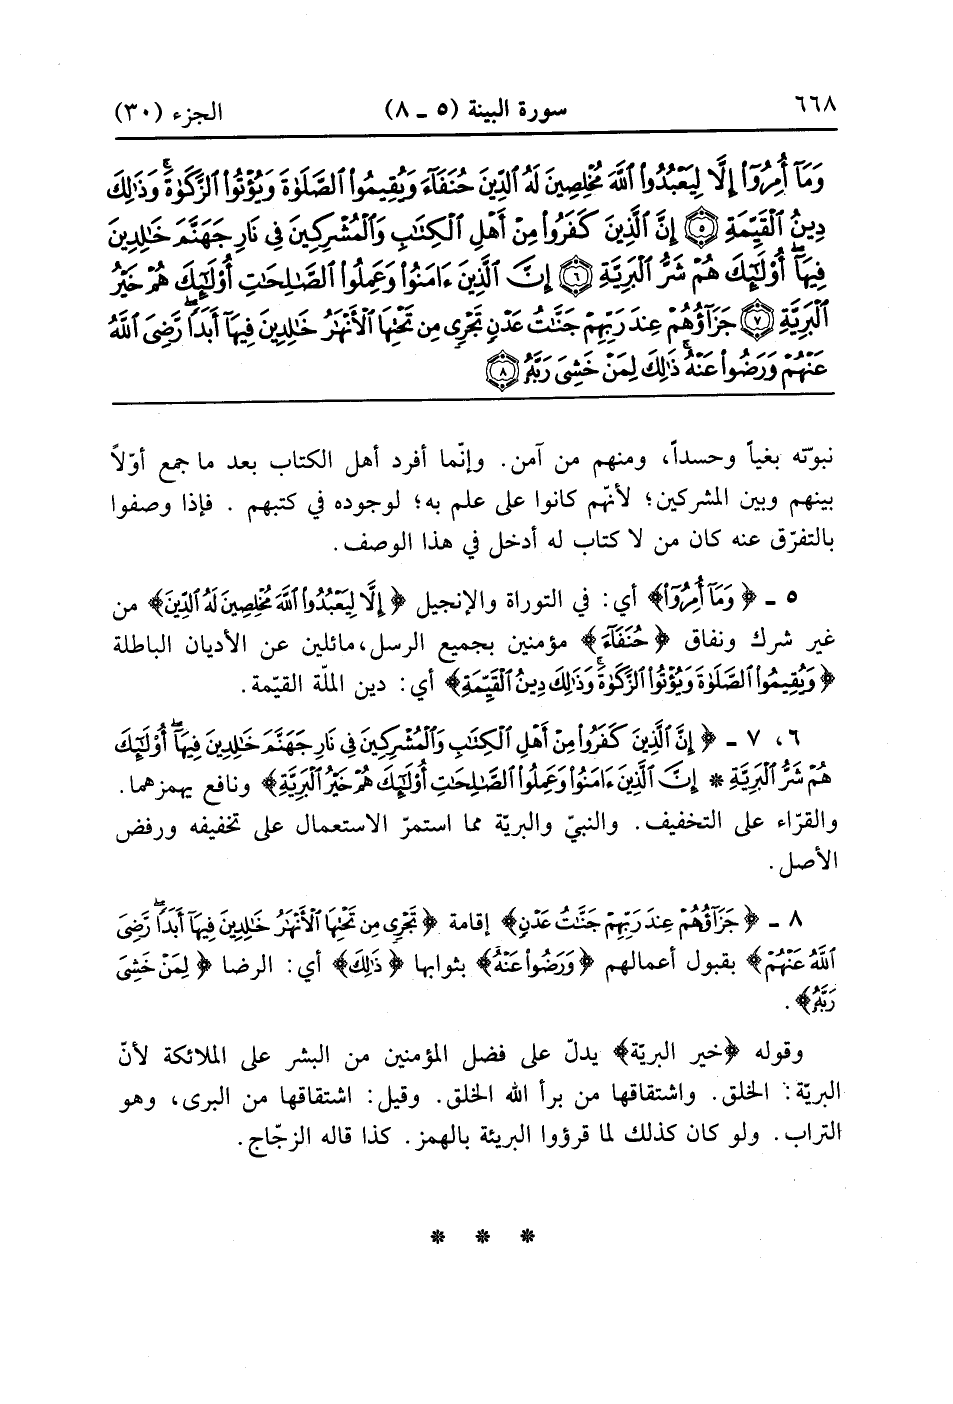 ٦٦٨ سورة البينة (٥ ـ ٨) الجزء (٣٠)
وَمَآ أُمِرُوٓا۟ إِلَّا لِيَعْبُدُوا۟ ٱللَّهَ مُخْلِصِينَ لَهُ ٱلدِّينَ حُنَفَآءَ وَيُقِيمُوا۟ ٱلصَّلَوٰةَ وَيُؤْتُوا۟ ٱلزَّكَوٰةَ ۚ وَذَٰلِكَ
دِينُ ٱلْقَيِّمَةِ ٥ إِنَّ ٱلَّذِينَ كَفَرُوا۟ مِنْ أَهْلِ ٱلْكِتَٰبِ وَٱلْمُشْرِكِينَ فِى نَارِ جَهَنَّمَ خَٰلِدِينَ
فِيهَآ ۚ أُو۟لَٰٓئِكَ هُمْ شَرُّ ٱلْبَرِيَّةِ ٦ إِنَّ ٱلَّذِينَ ءَامَنُوا۟ وَعَمِلُوا۟ ٱلصَّٰلِحَٰتِ أُو۟لَٰٓئِكَ هُمْ خَيْرُ
ٱلْبَرِيَّةِ ٧ جَزَآؤُهُمْ عِندَ رَبِّهِمْ جَنَّٰتُ عَدْنٍ تَجْرِى مِن تَحْتِهَا ٱلْأَنْهَٰرُ خَٰلِدِينَ فِيهَآ أَبَدًا ۖ رَّضِىَ ٱللَّهُ
عَنْهُمْ وَرَضُوا۟ عَنْهُ ۚ ذَٰلِكَ لِمَنْ خَشِىَ رَبَّهُۥ ٨
نبوّته بغياً وحسداً، ومنهم من آمن. وإنّما أفرد أهل الكتاب بعد ما جمع أوّلاً
بينهم وبين المشركين؛ لأنّهم كانوا على علم به؛ لوجوده في كتبهم . فإذا وصفوا
بالتفرّق عنه كان من لا كتاب له أدخل في هذا الوصف.
٥ ـ ﴿وَمَآ أُمِرُوٓا۟﴾ أي: في التوراة والإنجيل ﴿إِلَّا لِيَعْبُدُوا۟ ٱللَّهَ مُخْلِصِينَ لَهُ ٱلدِّينَ﴾ من
غير شرك ونفاق ﴿حُنَفَآءَ﴾ مؤمنين بجميع الرسل، مائلين عن الأديان الباطلة
﴿وَيُقِيمُوا۟ ٱلصَّلَوٰةَ وَيُؤْتُوا۟ ٱلزَّكَوٰةَ ۚ وَذَٰلِكَ دِينُ ٱلْقَيِّمَةِ﴾ أي: دين الملّة القيّمة.
٦، ٧ ـ ﴿إِنَّ ٱلَّذِينَ كَفَرُوا۟ مِنْ أَهْلِ ٱلْكِتَٰبِ وَٱلْمُشْرِكِينَ فِى نَارِ جَهَنَّمَ خَٰلِدِينَ فِيهَآ ۚ أُو۟لَٰٓئِكَ
هُمْ شَرُّ ٱلْبَرِيَّةِ * إِنَّ ٱلَّذِينَ ءَامَنُوا۟ وَعَمِلُوا۟ ٱلصَّٰلِحَٰتِ أُو۟لَٰٓئِكَ هُمْ خَيْرُ ٱلْبَرِيَّةِ﴾ ونافع يهمزهما.
والقرّاء على التخفيف. والنبيّ والبريّة مما استمرّ الاستعمال على تخفيفه ورفض
الأصل.
٨ ـ ﴿جَزَآؤُهُمْ عِندَ رَبِّهِمْ جَنَّٰتُ عَدْنٍ﴾ إقامة ﴿تَجْرِى مِن تَحْتِهَا ٱلْأَنْهَٰرُ خَٰلِدِينَ فِيهَآ أَبَدًا ۖ رَّضِىَ
ٱللَّهُ عَنْهُمْ﴾ بقبول أعمالهم ﴿وَرَضُوا۟ عَنْهُ﴾ بثوابها ﴿ذَٰلِكَ﴾ أي: الرضا ﴿لِمَنْ خَشِىَ
رَبَّهُۥ﴾.
وقوله ﴿خير البريّة﴾ يدلّ على فضل المؤمنين من البشر على الملائكة لأنّ
البريّة: الخلق. واشتقاقها من برأ الله الخلق. وقيل: اشتقاقها من البرى، وهو
التراب. ولو كان كذلك لما قرؤوا البريئة بالهمز. كذا قاله الزجّاج.
* * *